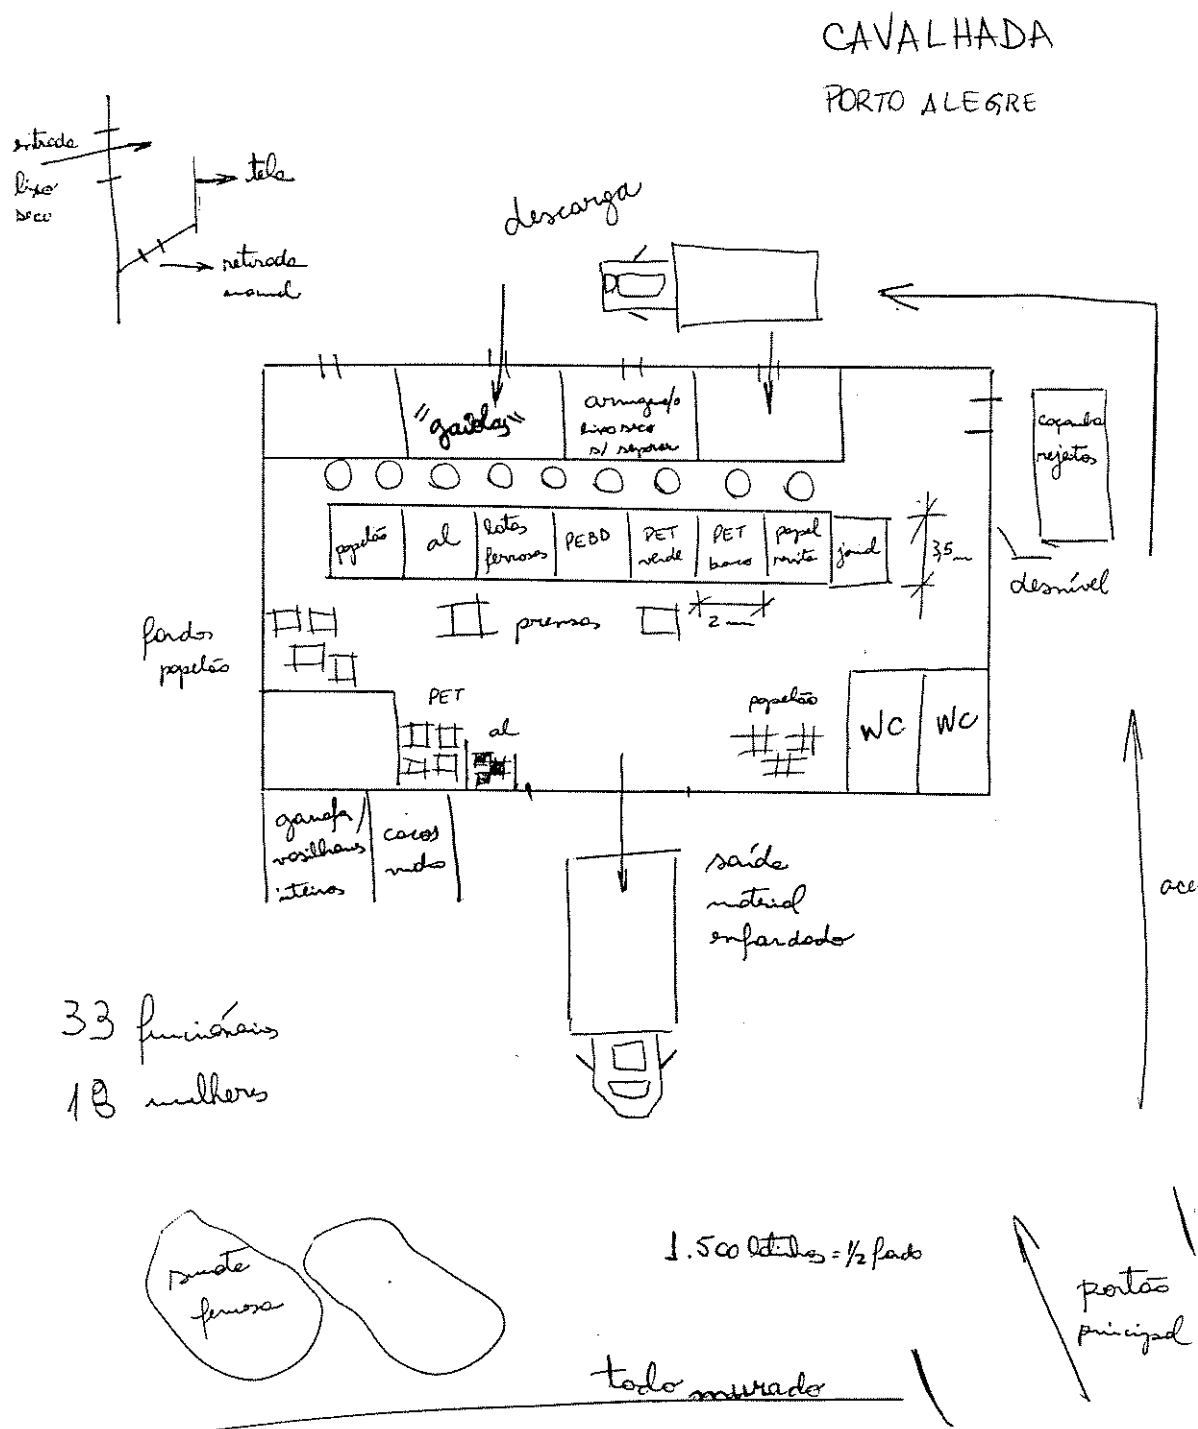 CAVALHADA
PORTO ALEGRE
entrada
lixo
seco
tela
retirada
manual
descarga
"gaiolas"
lixo seco
s/ separar
caçamba
rejeitos
papelão
al
latas
ferrosas
PEBD
PET
verde
PET
papel
jornal
3,5 m
desnível
fardos
papelão
prensas
2 m
PET
al
papelão
WC
WC
garrafa/
vasilhames
inteiros
cacos
vidro
saída
material
enfardado
33 funcionários
18 mulheres
sucata
ferrosa
1.500 latinhas = 1/2 fardo
portão
principal
todo murado